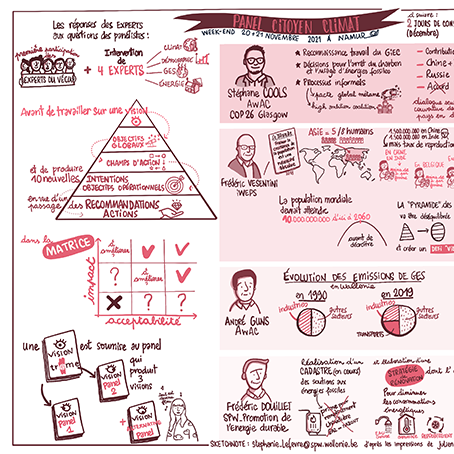 Les réponses des EXPERTS
aux questions des panélistes :
première participation
des
EXPERTS DU VÉCU
+ 4 EXPERTS
Intervention
de
CLIMAT
DÉMOGRAPHIE
GES
ÉNERGIE
Avant de travailler sur une VISION
OBJECTIFS
GLOBAUX
CHAMPS D'ACTION :
et de produire
10 nouvelles
INTENTIONS
OBJECTIFS OPÉRATIONNELS
en vue d'un
passage
des RECOMMANDATIONS
ACTIONS
dans la
MATRICE
impact
acceptabilité
à améliorer
?
à améliorer
?
?
une
VISION
trame
est soumise au panel
qui
produit
3
visions
VISION
Panel
2
VISION
Panel
1
+
VISION
ALTERNATIVE
Panel
PANEL CITOYEN CLIMAT
WEEK-END 20+21 NOVEMBRE 2021 à NAMUR
à suivre :
2 JOURS DE CON
(Décembre)
Stéphane COOLS
AwAC
COP26 Glasgow
Reconnaissance travail du GIEC
Décisions pour l'arrêt du charbon
et l'usage d'énergies fossiles
Processus informels
pacte global méthane
high ambition coalition
Contribution
Chine +
Russie
Accord
dialogue sou
couverture d
pays en d
Frédéric VESENTINI
iWEPS
ASIE = 5/8 humains
1.500.000.000 en Chine
1.500.000.000 en Inde
mais taux de reproduction
EN CHINE
EN INDE
EN BELGIQUE
La population mondiale
devrait atteindre
10 000 000 000 d'ici à 2060
avant de
décroître
LA "PYRAMIDE" DES
va être déséquilibrée
et créer un
André GUNS
AwAC
ÉVOLUTION DES EMISSIONS DE GES
en Wallonie
en 1990
en 2019
Industries
autres
secteurs
Industries
autres
secteurs
TRANSPORTS
Frédéric DOUILLET
SPW. Promotion de
l'Énergie durable
Réalisation d'un
CADASTRE (en cours)
des soutiens aux
énergies fossiles
et élaboration d'une
STRATÉGIE
RÉNOVATION
dont l'
Pour diminuer
les consommations
énergétiques
SKETCHNOTE : stephanie.lefevre@spw.wallonie.be
d'après les impressions de Julien